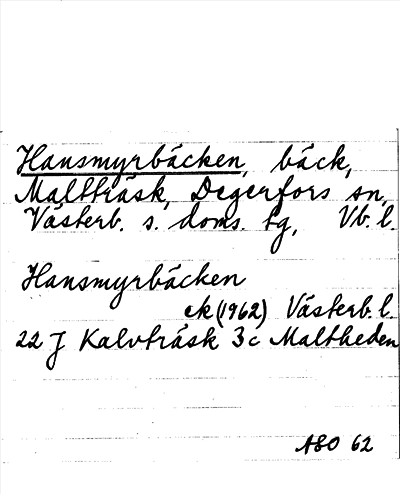 Hansmyrbäcken, bäck,
Maltträsk, Degerfors sn,
Västerb. s. doms. tg, Vb. l.
Hansmyrbäcken
ek (1962) Västerb. l.
22 J Kalvträsk 3c Maltheden
ASO 62